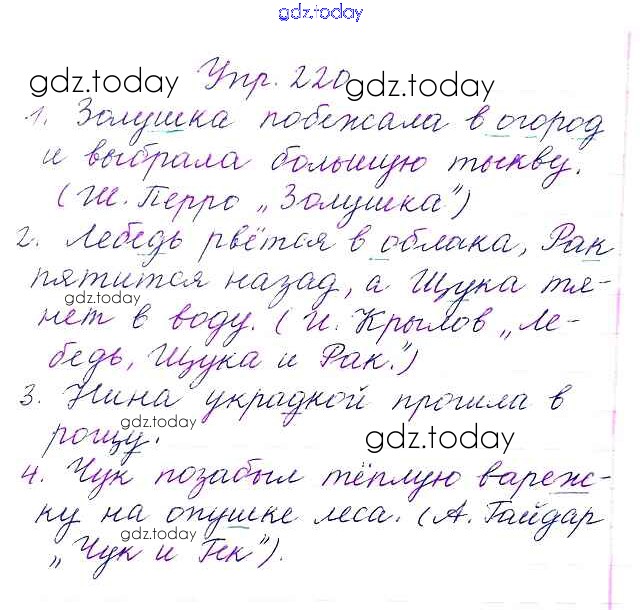 gdz.today
Упр. 220
gdz.today gdz.today
1. Золушка побежала в огород
и выбрала большую тыкву.
(Ш. Перро „Золушка")
2. Лебедь рвётся в облака, Рак
пятится назад, а Щука тя-
gdz.today
нет в воду. (И. Крылов „Ле-
бедь, Щука и Рак.")
3. Нина украдкой прошла в
gdz.today
рощу.
gdz.today
4. Чук позабыл тёплую вареж-
ку на опушке леса. (А. Гайдар
gdz.today
„Чук и Гек").
gdz.today